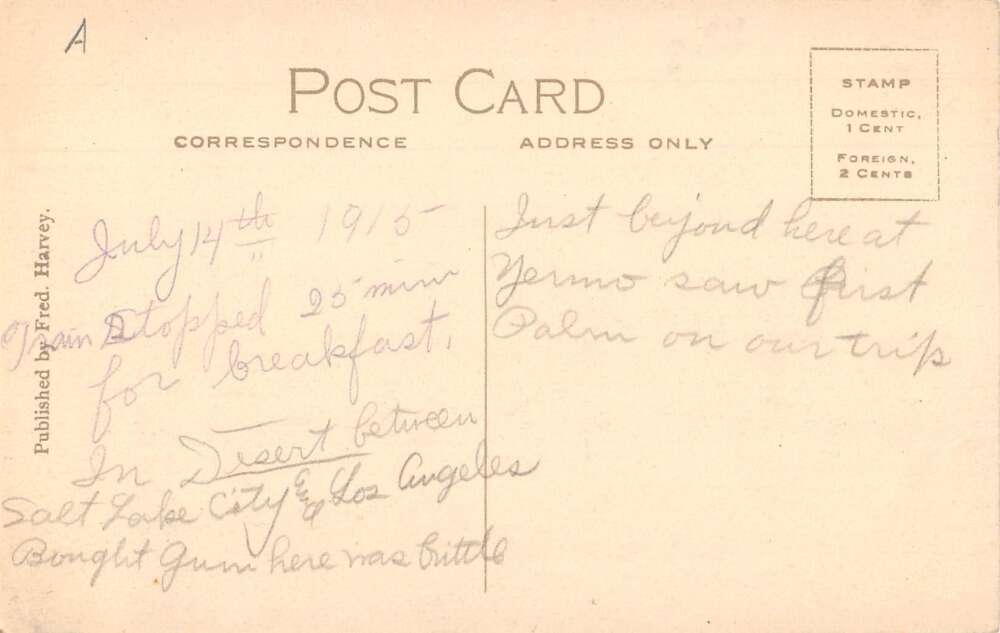 A
POST CARD
CORRESPONDENCE
ADDRESS ONLY
STAMP
DOMESTIC,
1 CENT
FOREIGN,
2 CENTS
Published by Fred. Harvey.
July 14th 1915
Train Stopped 25 min
for breakfast.
In Desert between
Salt Lake City & Los Angeles
Bought Gum here was brittle
Just beyond here at
Yermo saw first
Palm on our trip